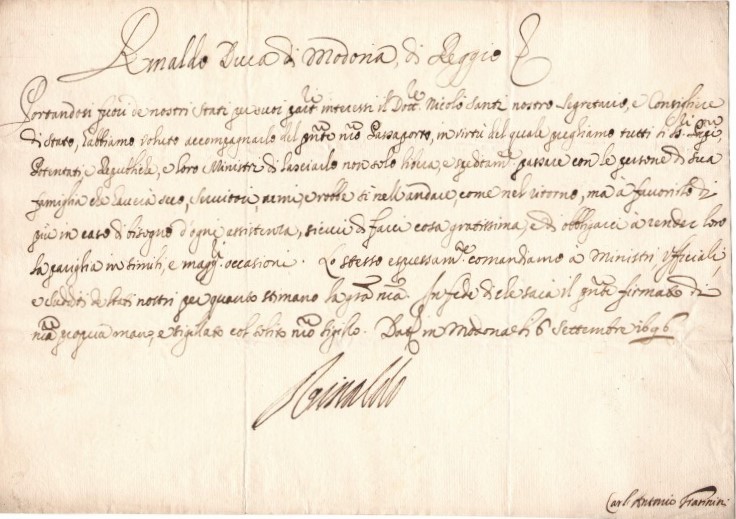 Rinaldo Duca di Modona, di Reggio &c
Portandosi fuori de nostri Stati per suoi part.ri interessi il Dott.re Nicolò Santi nostro Segretario, e Consigliere
di Stato, l'abbiamo voluto accompagnarlo del pnte nro Passaporto, in virtù del quale preghiamo tutti li SS.ri
Potentati e Republiche, e loro Ministri di lasciarlo non solo libera, e speditam.te passare con le persone di sua
famiglia che haverà seco, Servitori, armi, e robbe sì nell'andare, come nel ritorno, mà à favorirlo di
più in caso di bisogno d'ogni assistenza, sicuri di farci cosa gratissima, e di obbligarci à render loro
la pariglia in simili, e magg.ri occasioni. Lo stesso espressam.te comandiamo à Ministri Ufficiali,
e sudditi de stati nostri per quanto stimano la gra nra. In fede di che sarà il pnte firmato di
nra propria mano, e sigillato col solito nro sigillo. Dat in Modona li 6 Settembre 1696
Rinaldo
Carl' Antonio